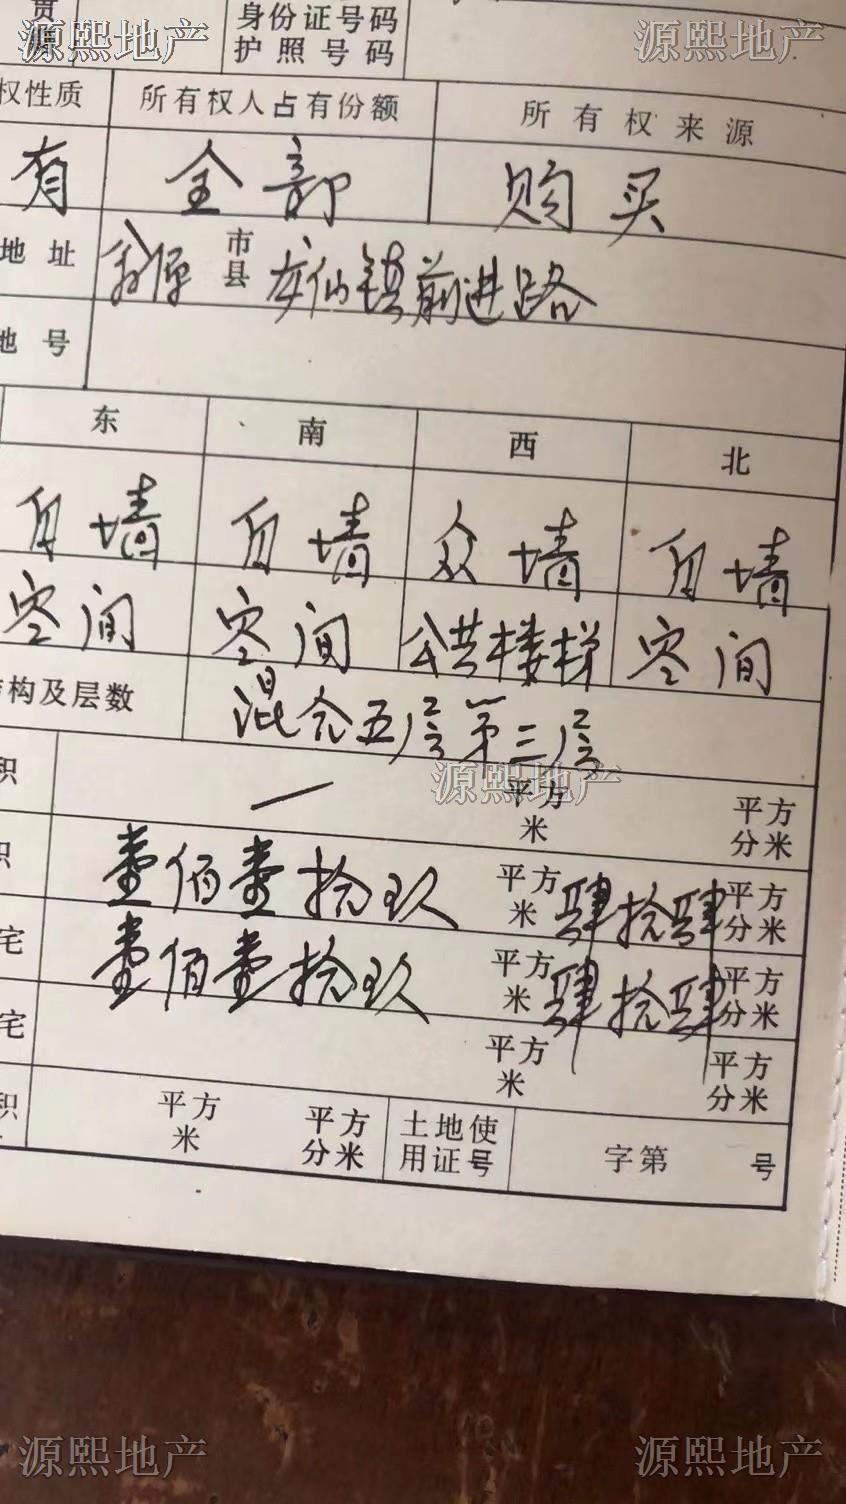 贯
源熙地产
身份证号码
护照号码
源熙地产
权性质 所有权人占有份额 所有权来源
有 全部 购买
地址 翁源 市县 龙仙镇前进路
地号
东 南 西 北
自墙 自墙 众墙 自墙
空间 空间 公共楼梯 空间
构及层数 混合五层第三层
源熙地产
积 一 平方米 平方分米
积 壹佰壹拾玖 平方米 肆拾肆 平方分米
宅 壹佰壹拾玖 平方米 肆拾肆 平方分米
宅 平方米 平方分米
积 平方米 平方分米 土地使用证号 字第 号
源熙地产 源熙地产